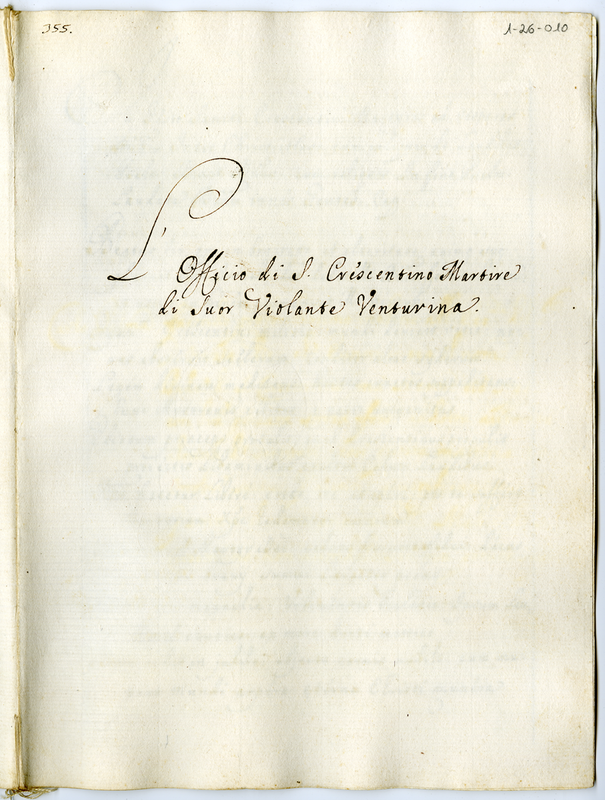 355.
1-26-010
L'Officio di S. Crescentino Martire
di Suor Violante Venturina.